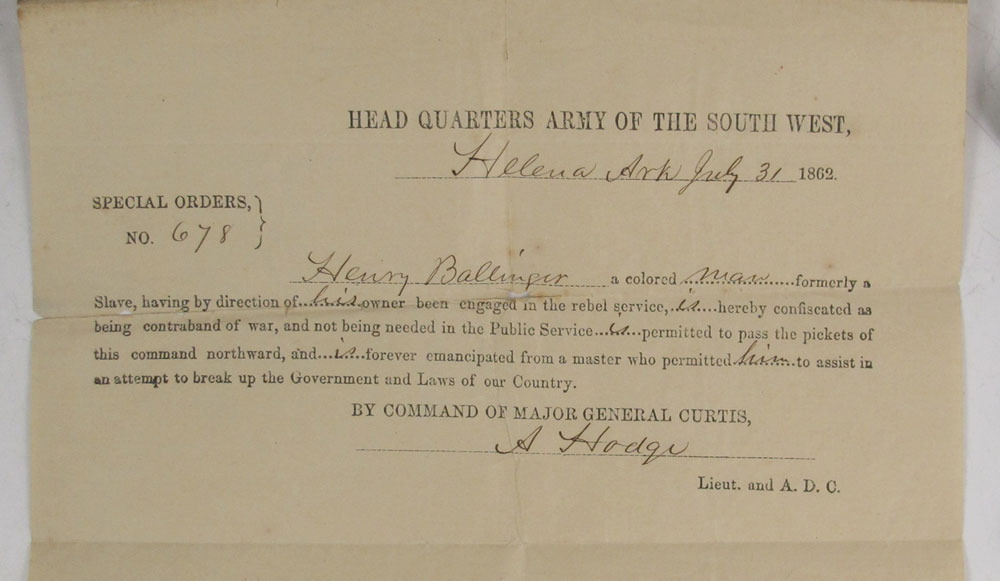 HEAD QUARTERS ARMY OF THE SOUTH WEST,
Helena Ark July 31 1862.
SPECIAL ORDERS,
NO. 678
Henry Ballinger a colored man formerly a
Slave, having by direction of his owner been engaged in the rebel service, is hereby confiscated as
being contraband of war, and not being needed in the Public Service is permitted to pass the pickets of
this command northward, and is forever emancipated from a master who permitted him to assist in
an attempt to break up the Government and Laws of our Country.
BY COMMAND OF MAJOR GENERAL CURTIS,
A Hodge
Lieut. and A. D. C.